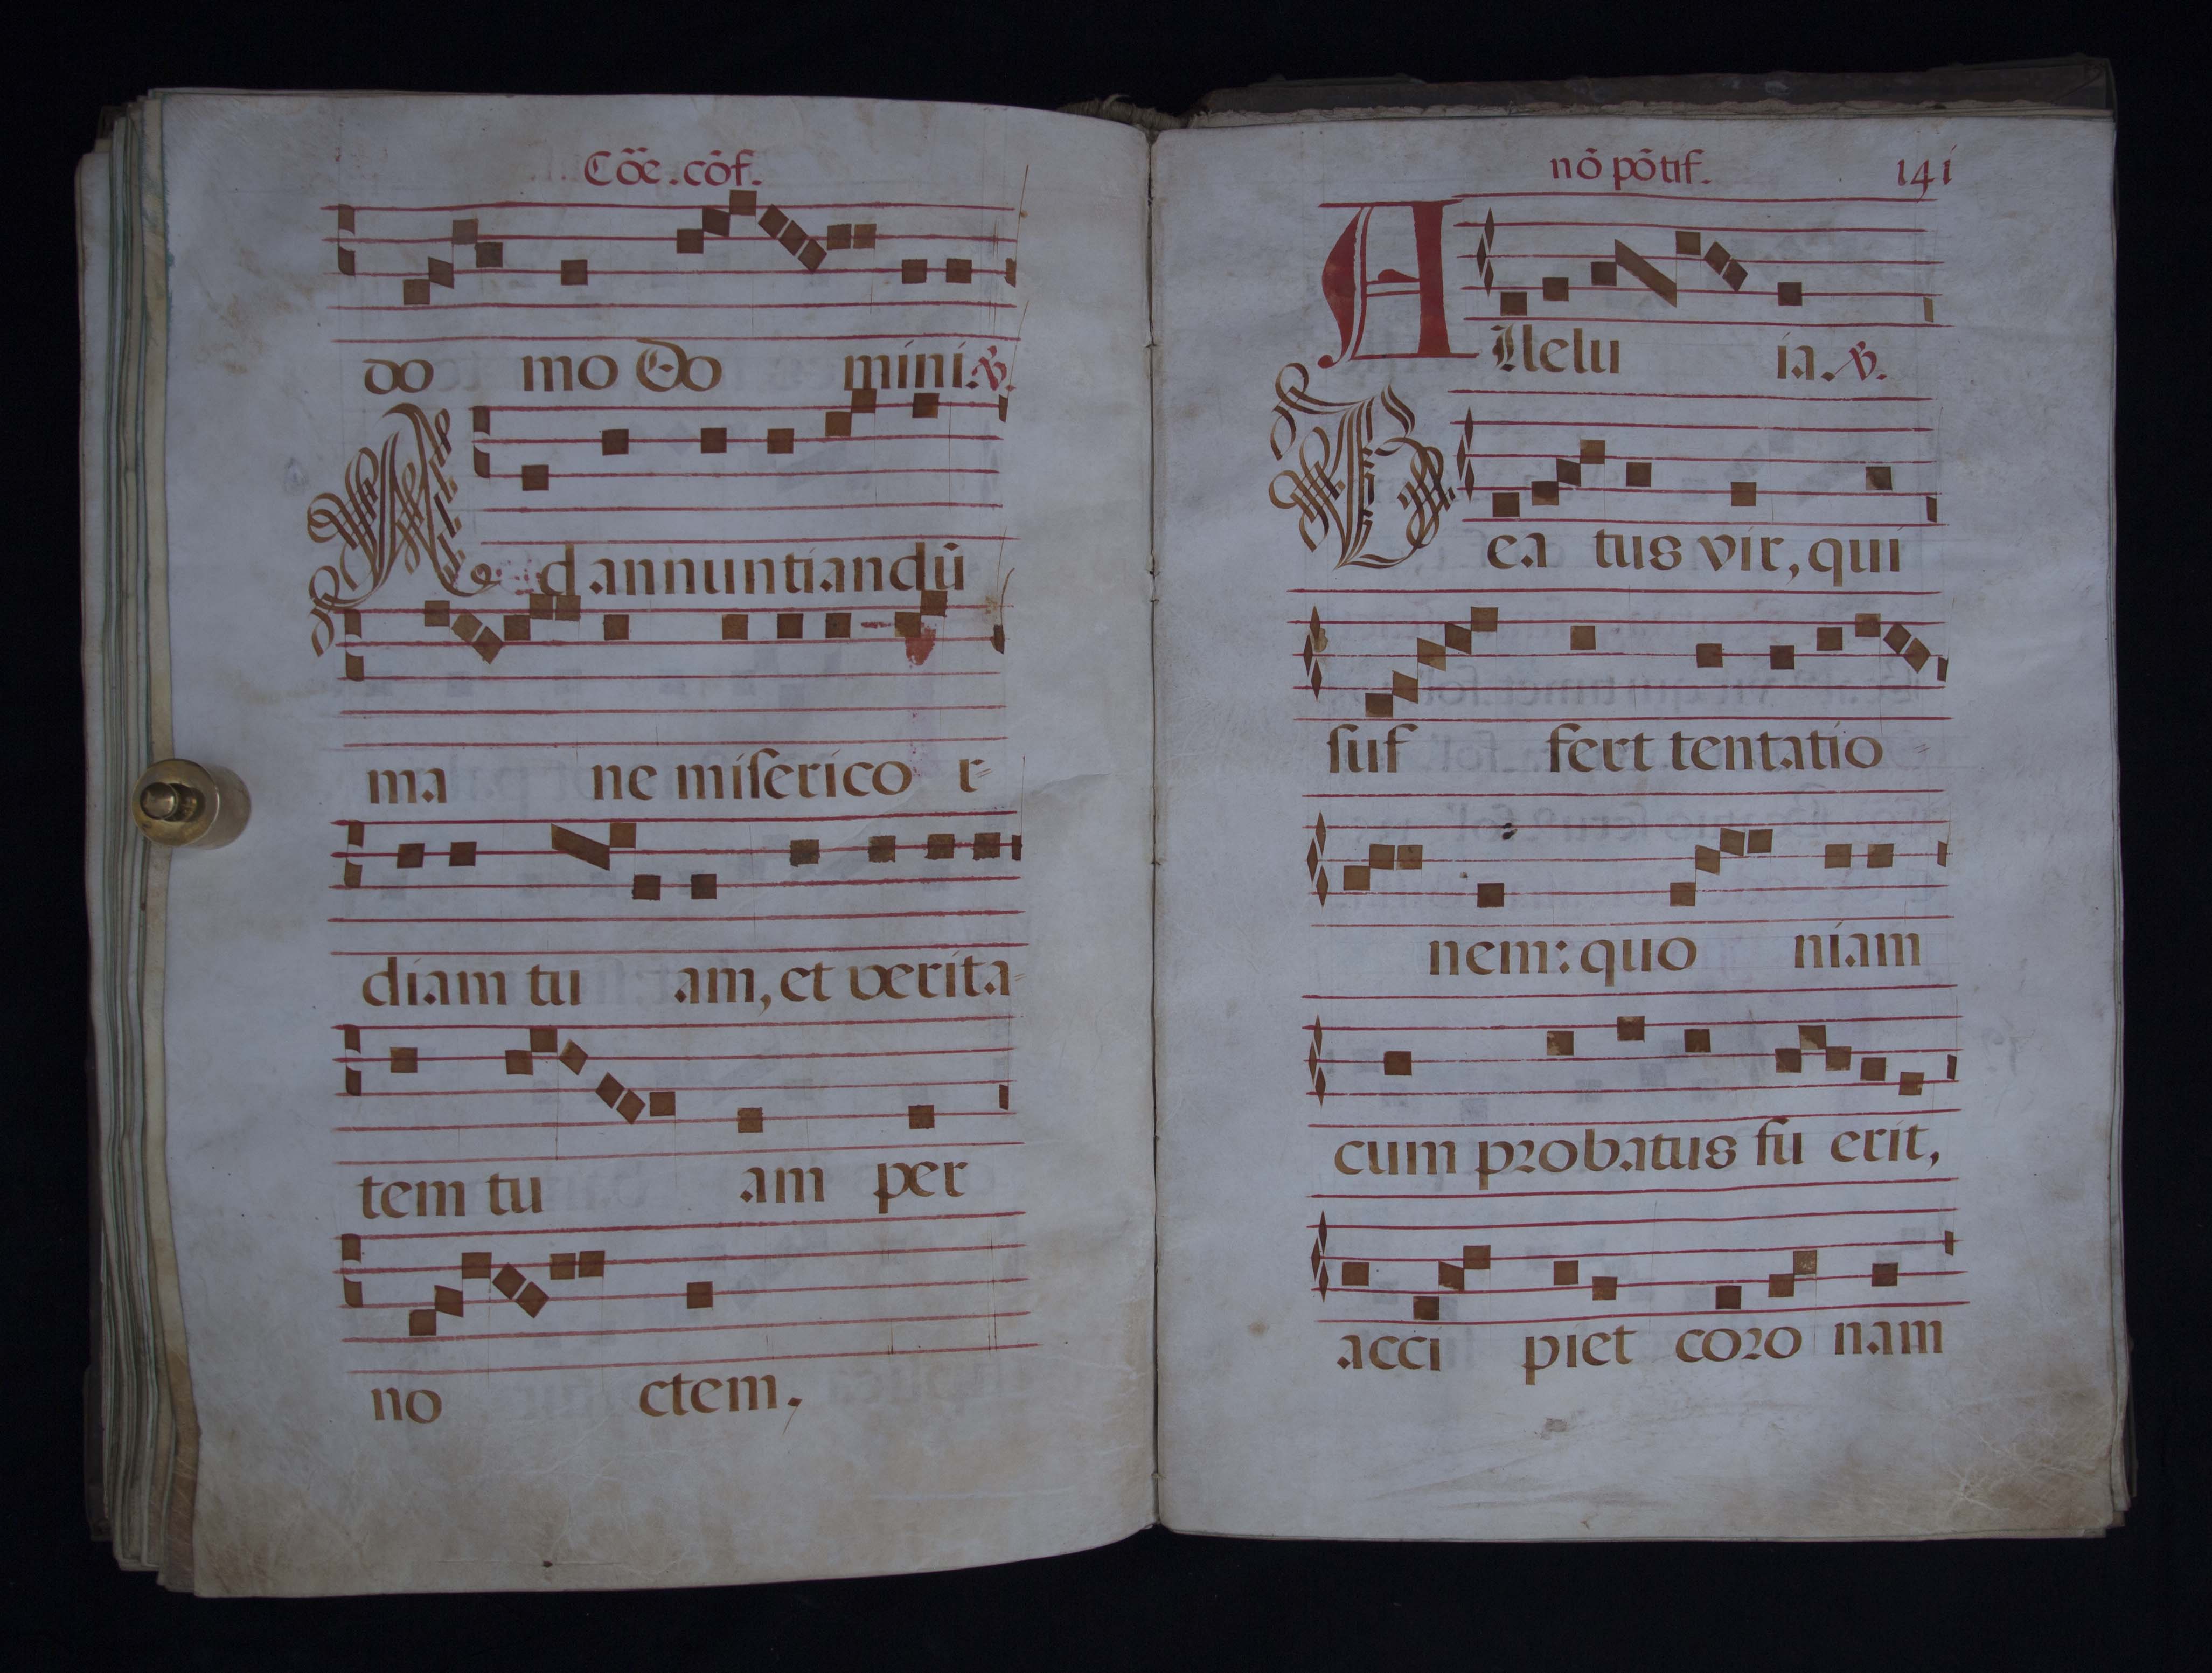 Cōe. cōf.
do mo Do mini. ℣.
Ad annuntiandū
ma ne miſerico r=
diam tu am, et verita=
tem tu am per
no ctem.
nō pōtif. 141
Allelu ia. ℣.
Bea tus vir, qui
ſuf fert tentatio=
nem: quo niam
cum probatus fu erit,
acci piet coro nam